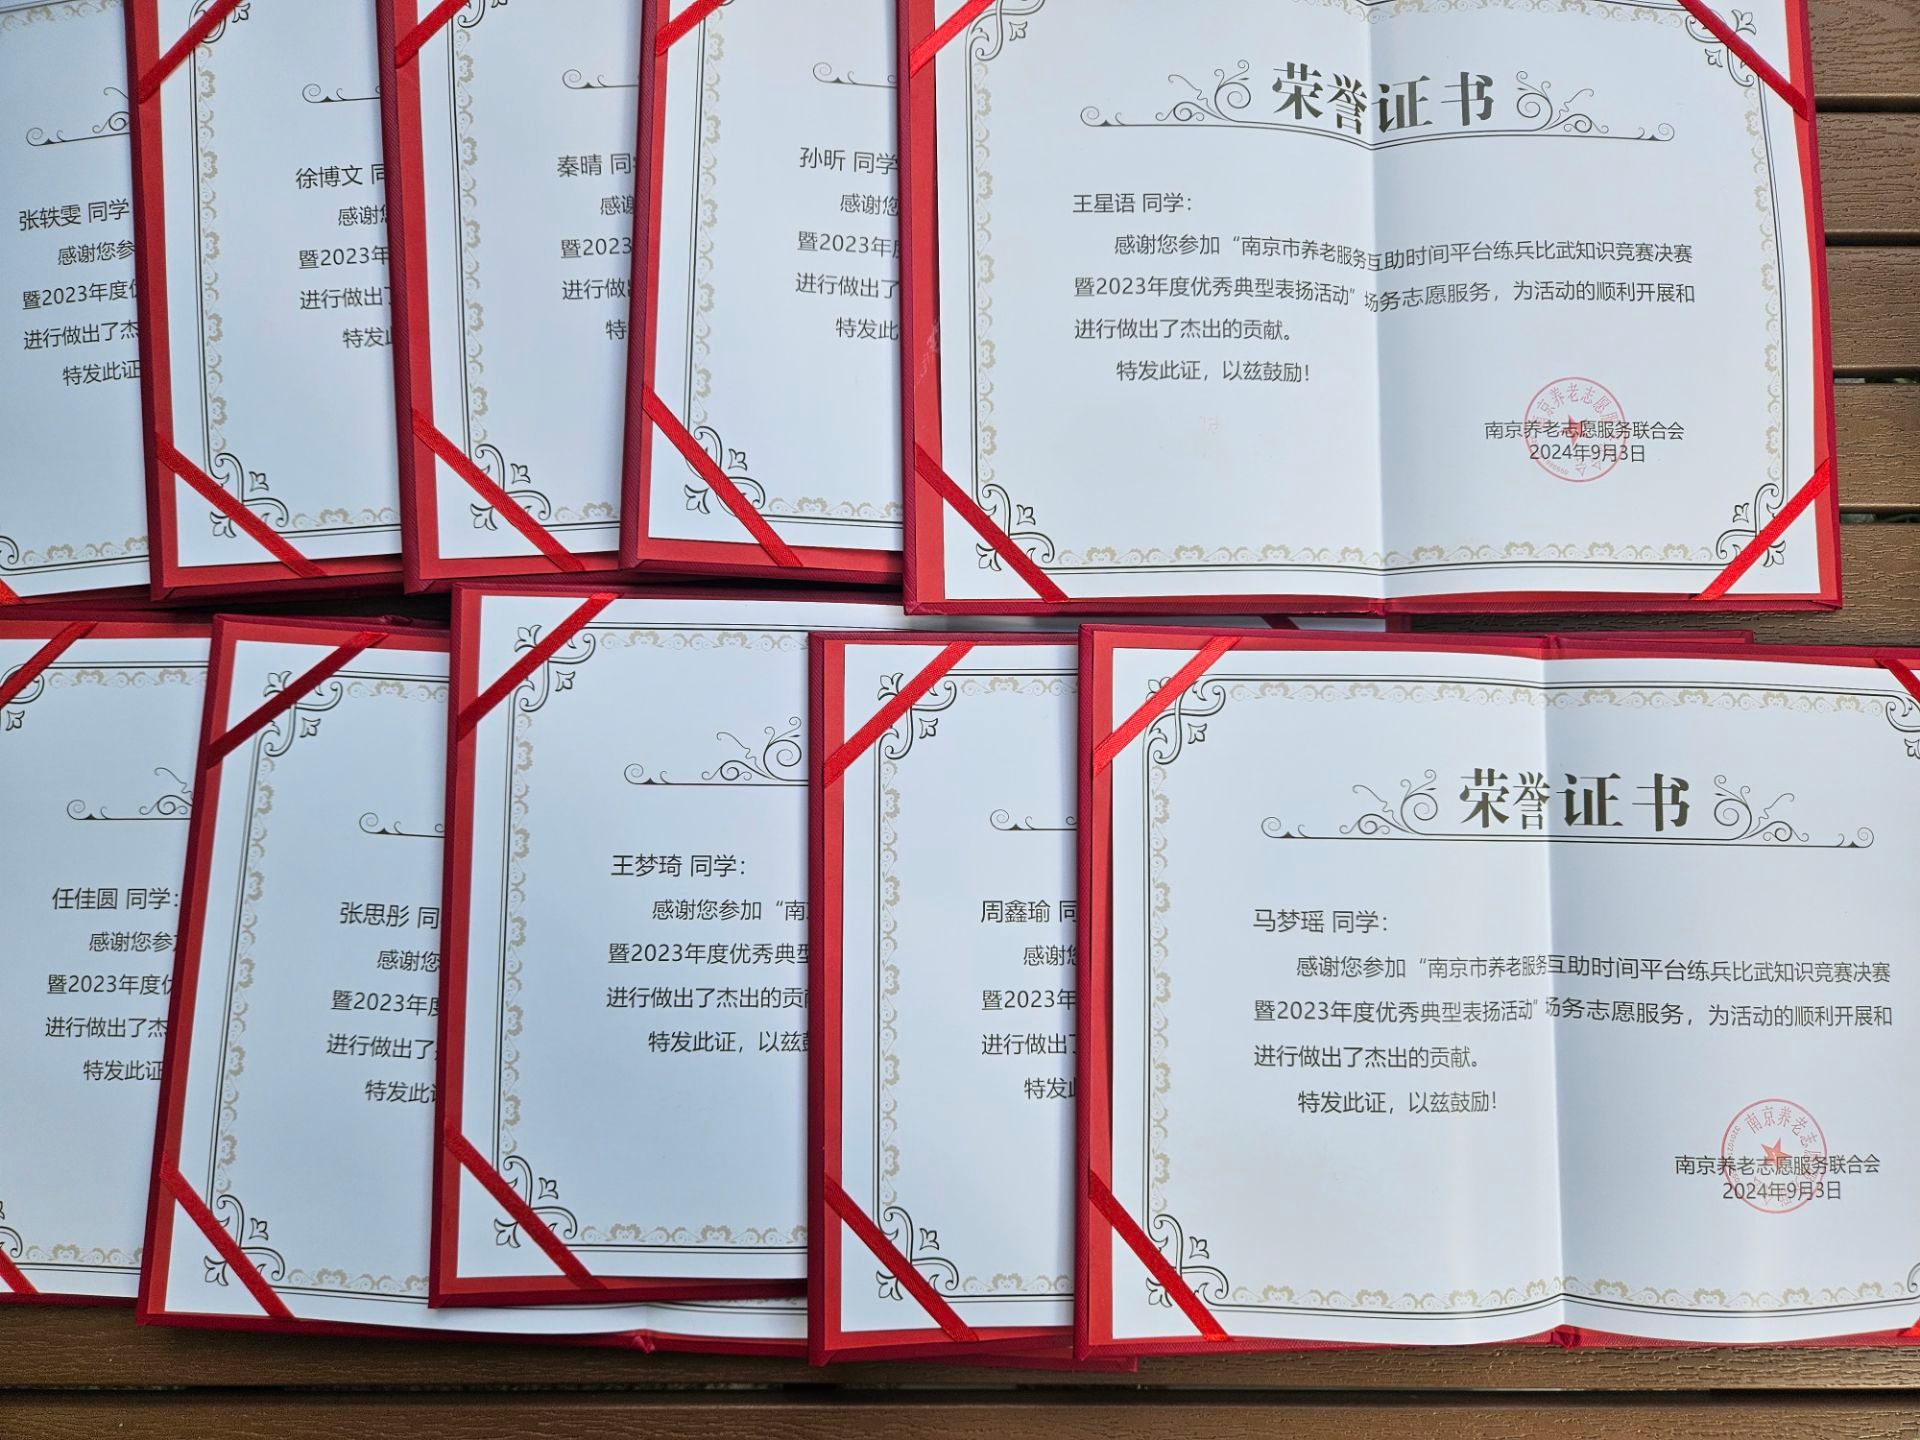 张轶雯 同学
感谢您参
暨2023年度优
进行做出了杰
特发此证
徐博文 同
感谢
暨2023年
进行做出
特发
秦晴 同
感谢
暨2023
进行做
特
孙昕 同学
感谢您
暨2023年度
进行做出了
特发此
荣誉证书
王星语 同学：
感谢您参加“南京市养老服务互助时间平台练兵比武知识竞赛决赛
暨2023年度优秀典型表扬活动”场务志愿服务，为活动的顺利开展和
进行做出了杰出的贡献。
特发此证，以兹鼓励！
南京养老志愿服务联合会
2024年9月3日
任佳圆 同学：
感谢您参
暨2023年度优
进行做出了杰
特发此证
张思彤 同
感谢您
暨2023年度
进行做出了
特发此证
王梦琦 同学：
感谢您参加“南
暨2023年度优秀典型
进行做出了杰出的贡
特发此证，以兹鼓
周鑫瑜 同
感谢
暨2023年
进行做出
特发
荣誉证书
马梦瑶 同学：
感谢您参加“南京市养老服务互助时间平台练兵比武知识竞赛决赛
暨2023年度优秀典型表扬活动”场务志愿服务，为活动的顺利开展和
进行做出了杰出的贡献。
特发此证，以兹鼓励！
南京养老志愿服务联合会
2024年9月3日